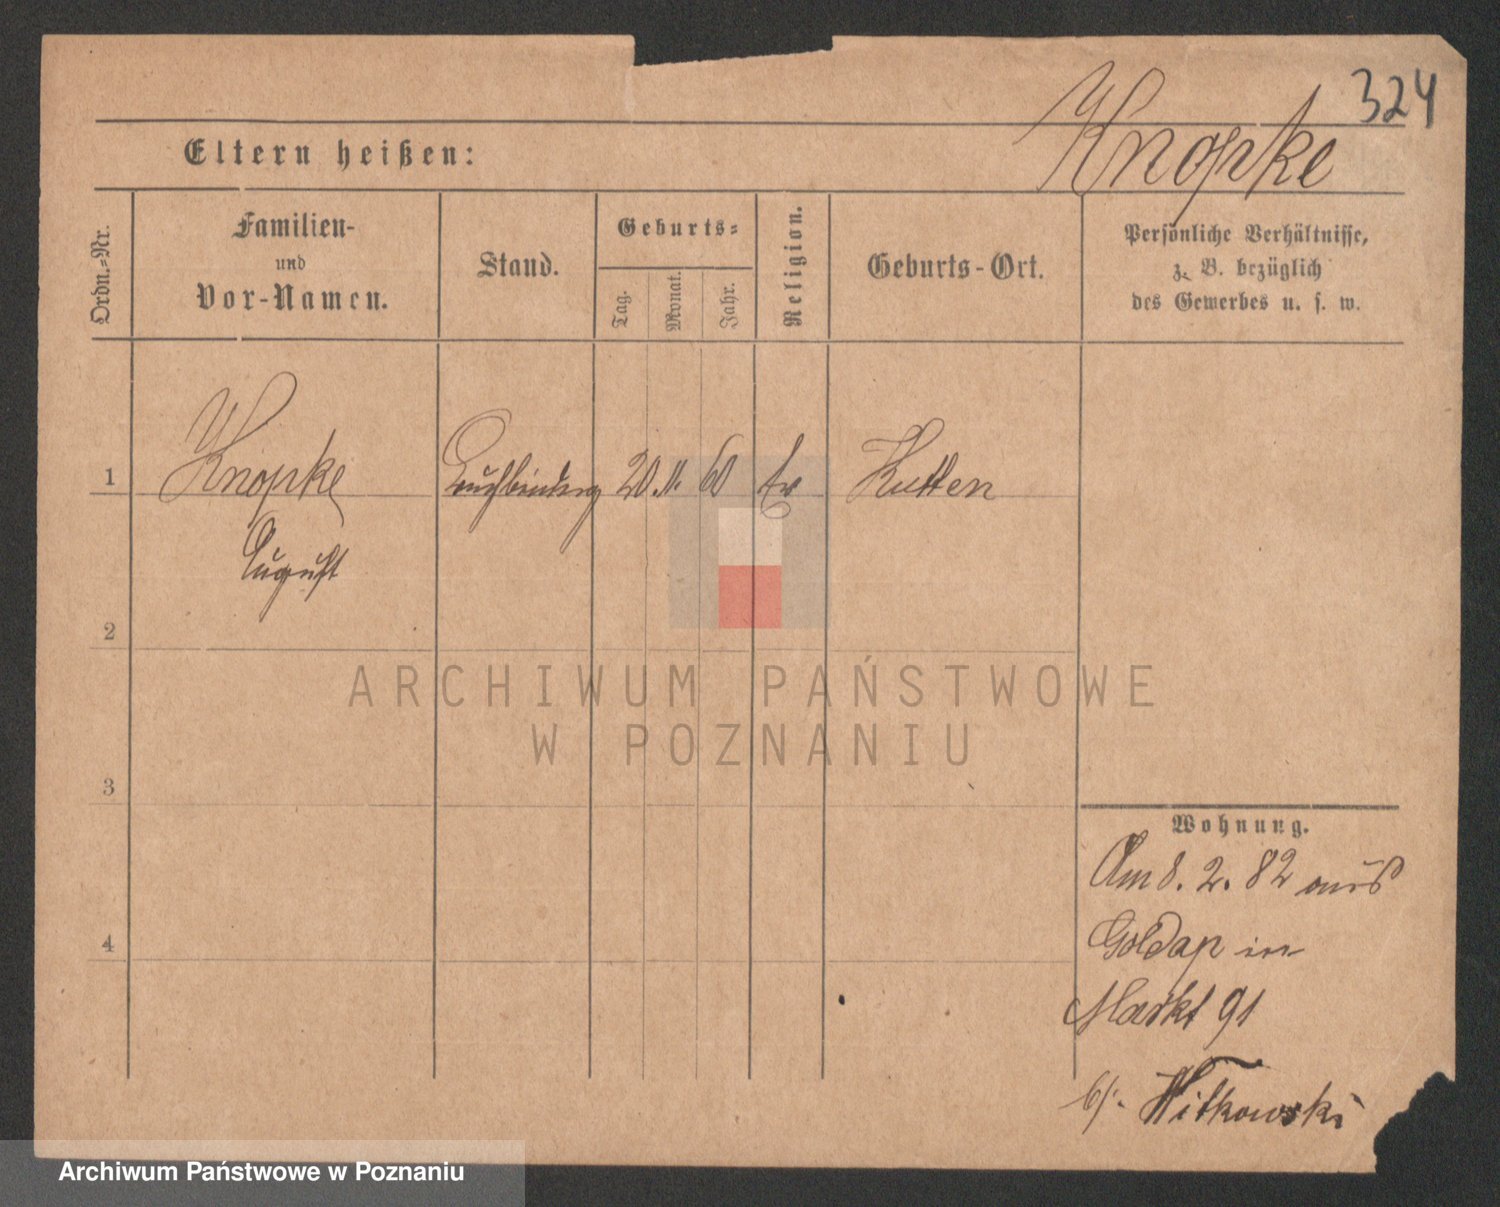 324
Knopke
Eltern heißen:
Ordn.-Nr.
Familien-
und
Vor-Namen.
Stand.
Geburts-
Tag.
Monat.
Jahr.
Religion.
Geburts-Ort.
Persönliche Verhältnisse,
z. B. bezüglich
des Gewerbes u. s. w.
1
Knopke
August
20. 11. 60
Ev
Kutten
2
3
4
Wohnung.
Am 8. 2. 82 aus
Goldap in
Markt 91
b/. Witkowski
ARCHIWUM PAŃSTWOWE
W POZNANIU
Archiwum Państwowe w Poznaniu